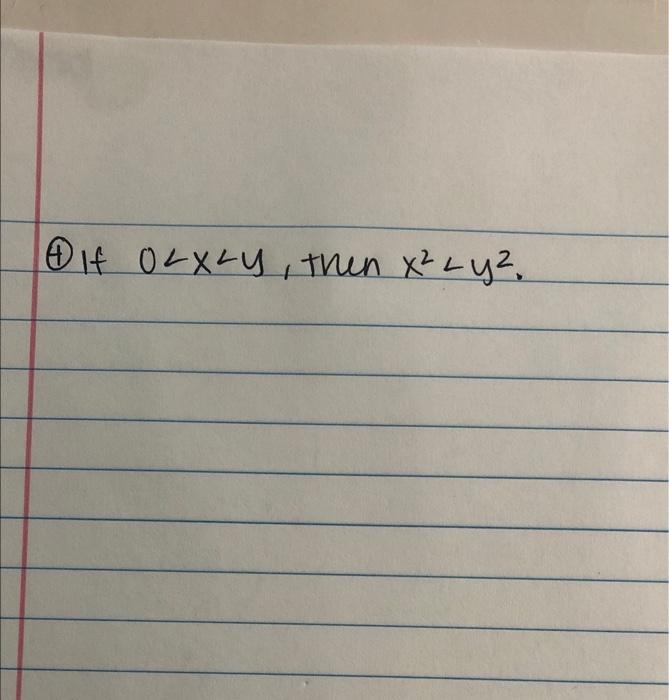 ④ If 0<x<y, then x²<y².